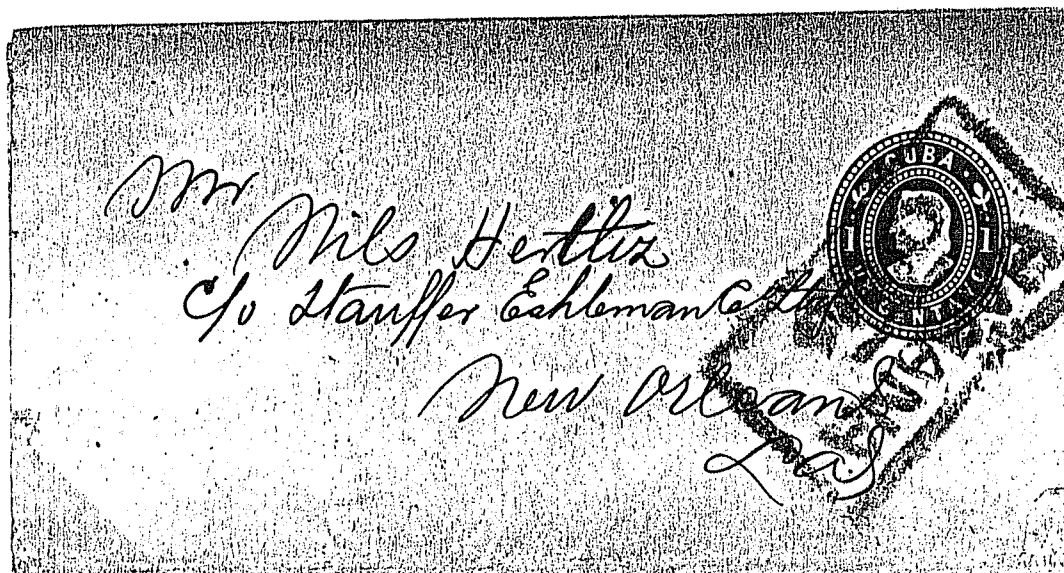 Mr
Nils Hertliz
C/o Stauffer Eshleman Co Ltd
New Orleans
La
CUBA
1 1
UN CENTAVO